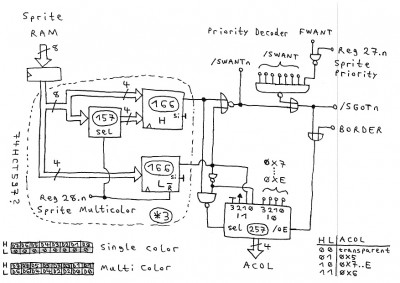 Sprite
RAM
8
Priority Decoder
FWANT
/SWANTn
/SWANT
Reg 27.n
Sprite
Priority
8
4
4
166
H
157
sel
/SGOTn
BORDER
74HCT597?
4
166
L
Reg 28.n
Sprite Multicolor
*3
0x7
0xE
3210
3210
11
10
sel 257 /OE
4
ACOL
H
L
Single Color
H
L
Multi Color
HL ACOL
00 transparent
01 0x5
10 0x7..E
11 0x6